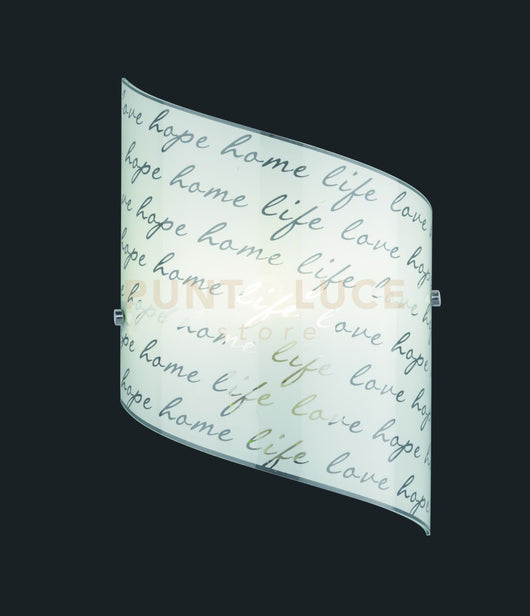 love hope home life love
hope home life love hope
love hope home life love
hope home life love hope
hope home life love hope
hope home life love hope
hope home life love hope
PUNTO LUCE
store